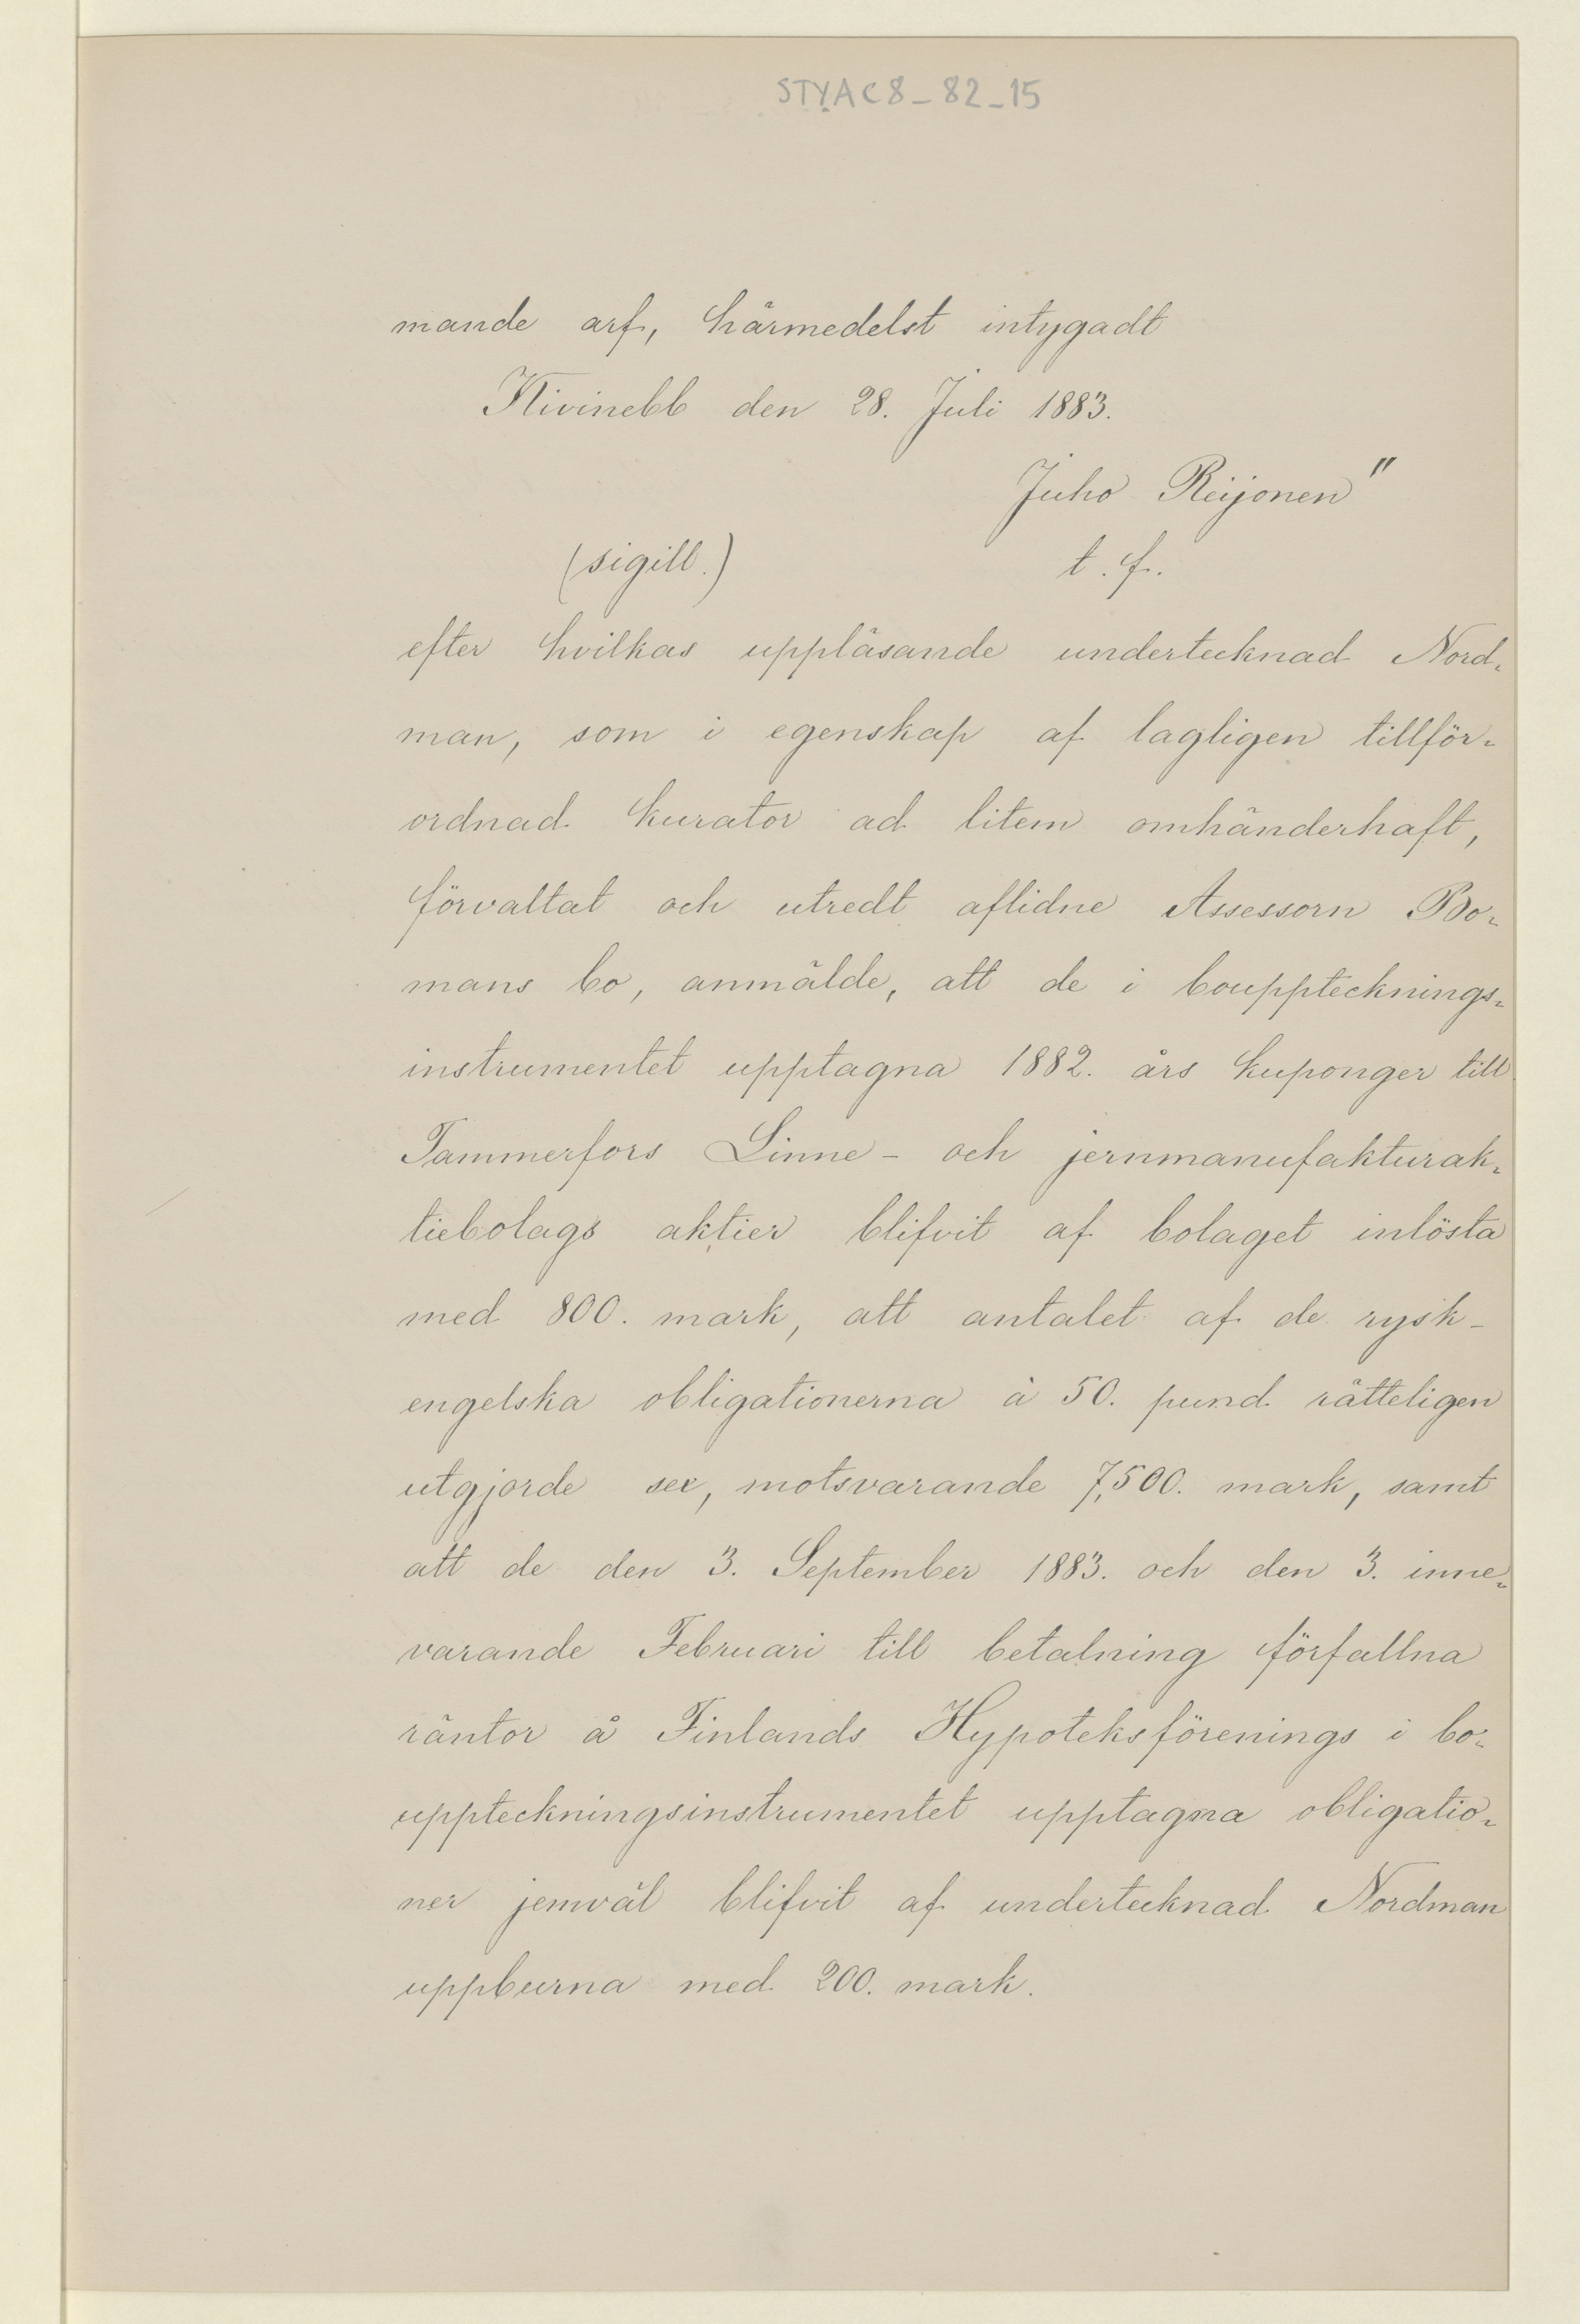 STYAC8_82_15
mande arf, härmedelst intygadt
Kivinebb den 28. Juli 1883.
Juho Reijonen"
(sigill.) t. f.
efter hvilkas uppläsande undertecknad Nord-
man, som i egenskap af lagligen tillför-
ordnad kurator ad litem omhänderhaft,
förvaltat och utredt aflidne Assessorn Bo-
mans bo, anmälde, att de i boupptecknings-
instrumentet upptagna 1882. års kuponger till
Tammerfors Linne- och jernmanufakturak-
tiebolags aktier blifvit af bolaget inlösta
med 800. mark, att antalet af de rysk-
engelska obligationerna à 50. pund rätteligen
utgjorde sex, motsvarande 7,500. mark, samt
att de den 3. September 1883. och den 3. inne-
varande Februari till betalning förfallna
räntor å Finlands Hypoteksförenings i bo-
uppteckningsinstrumentet upptagna obligatio-
ner jemväl blifvit af undertecknad Nordman
uppburna med 200. mark.